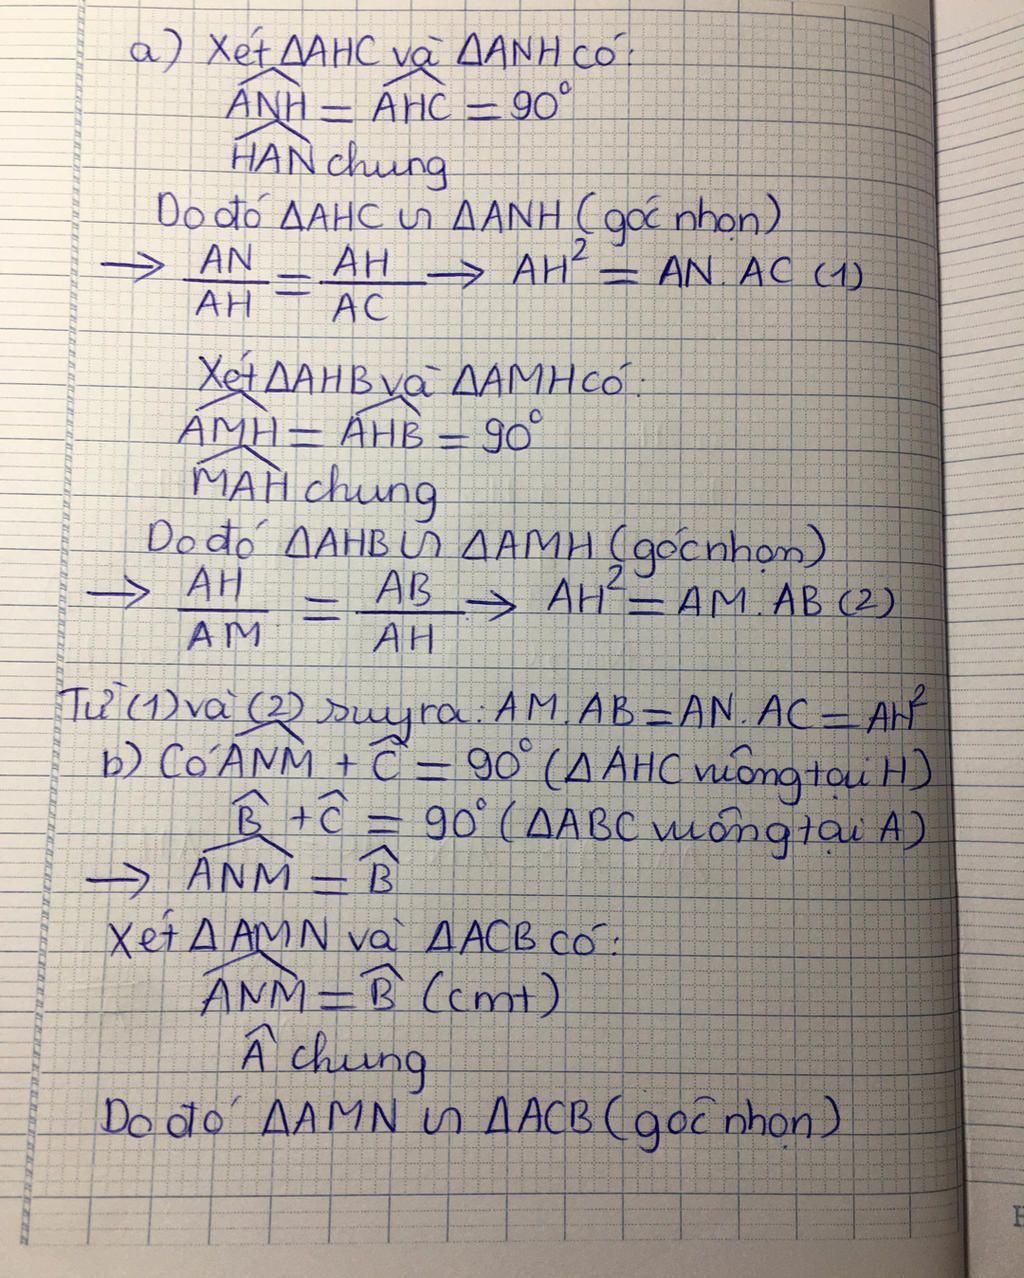 a) Xét ΔAHC và ΔANH có:
\widehat{ANH} = \widehat{AHC} = 90°
\widehat{HAN} chung
Do đó ΔAHC ᔕ ΔANH (góc nhọn)
→ \frac{AN}{AH} = \frac{AH}{AC} → AH² = AN. AC (1)
Xét ΔAHB và ΔAMH có:
\widehat{AMH} = \widehat{AHB} = 90°
\widehat{MAH} chung
Do đó ΔAHB ᔕ ΔAMH (góc nhọn)
→ \frac{AH}{AM} = \frac{AB}{AH} → AH² = AM. AB (2)
Từ (1) và (2) suy ra: AM. AB = AN. AC = AH²
b) Có \widehat{ANM} + \widehat{C} = 90° (ΔAHC vuông tại H)
\widehat{B} + \widehat{C} = 90° (ΔABC vuông tại A)
→ \widehat{ANM} = \widehat{B}
Xét ΔAMN và ΔACB có:
\widehat{ANM} = \widehat{B} (cmt)
\widehat{A} chung
Do đó ΔAMN ᔕ ΔACB (góc nhọn)